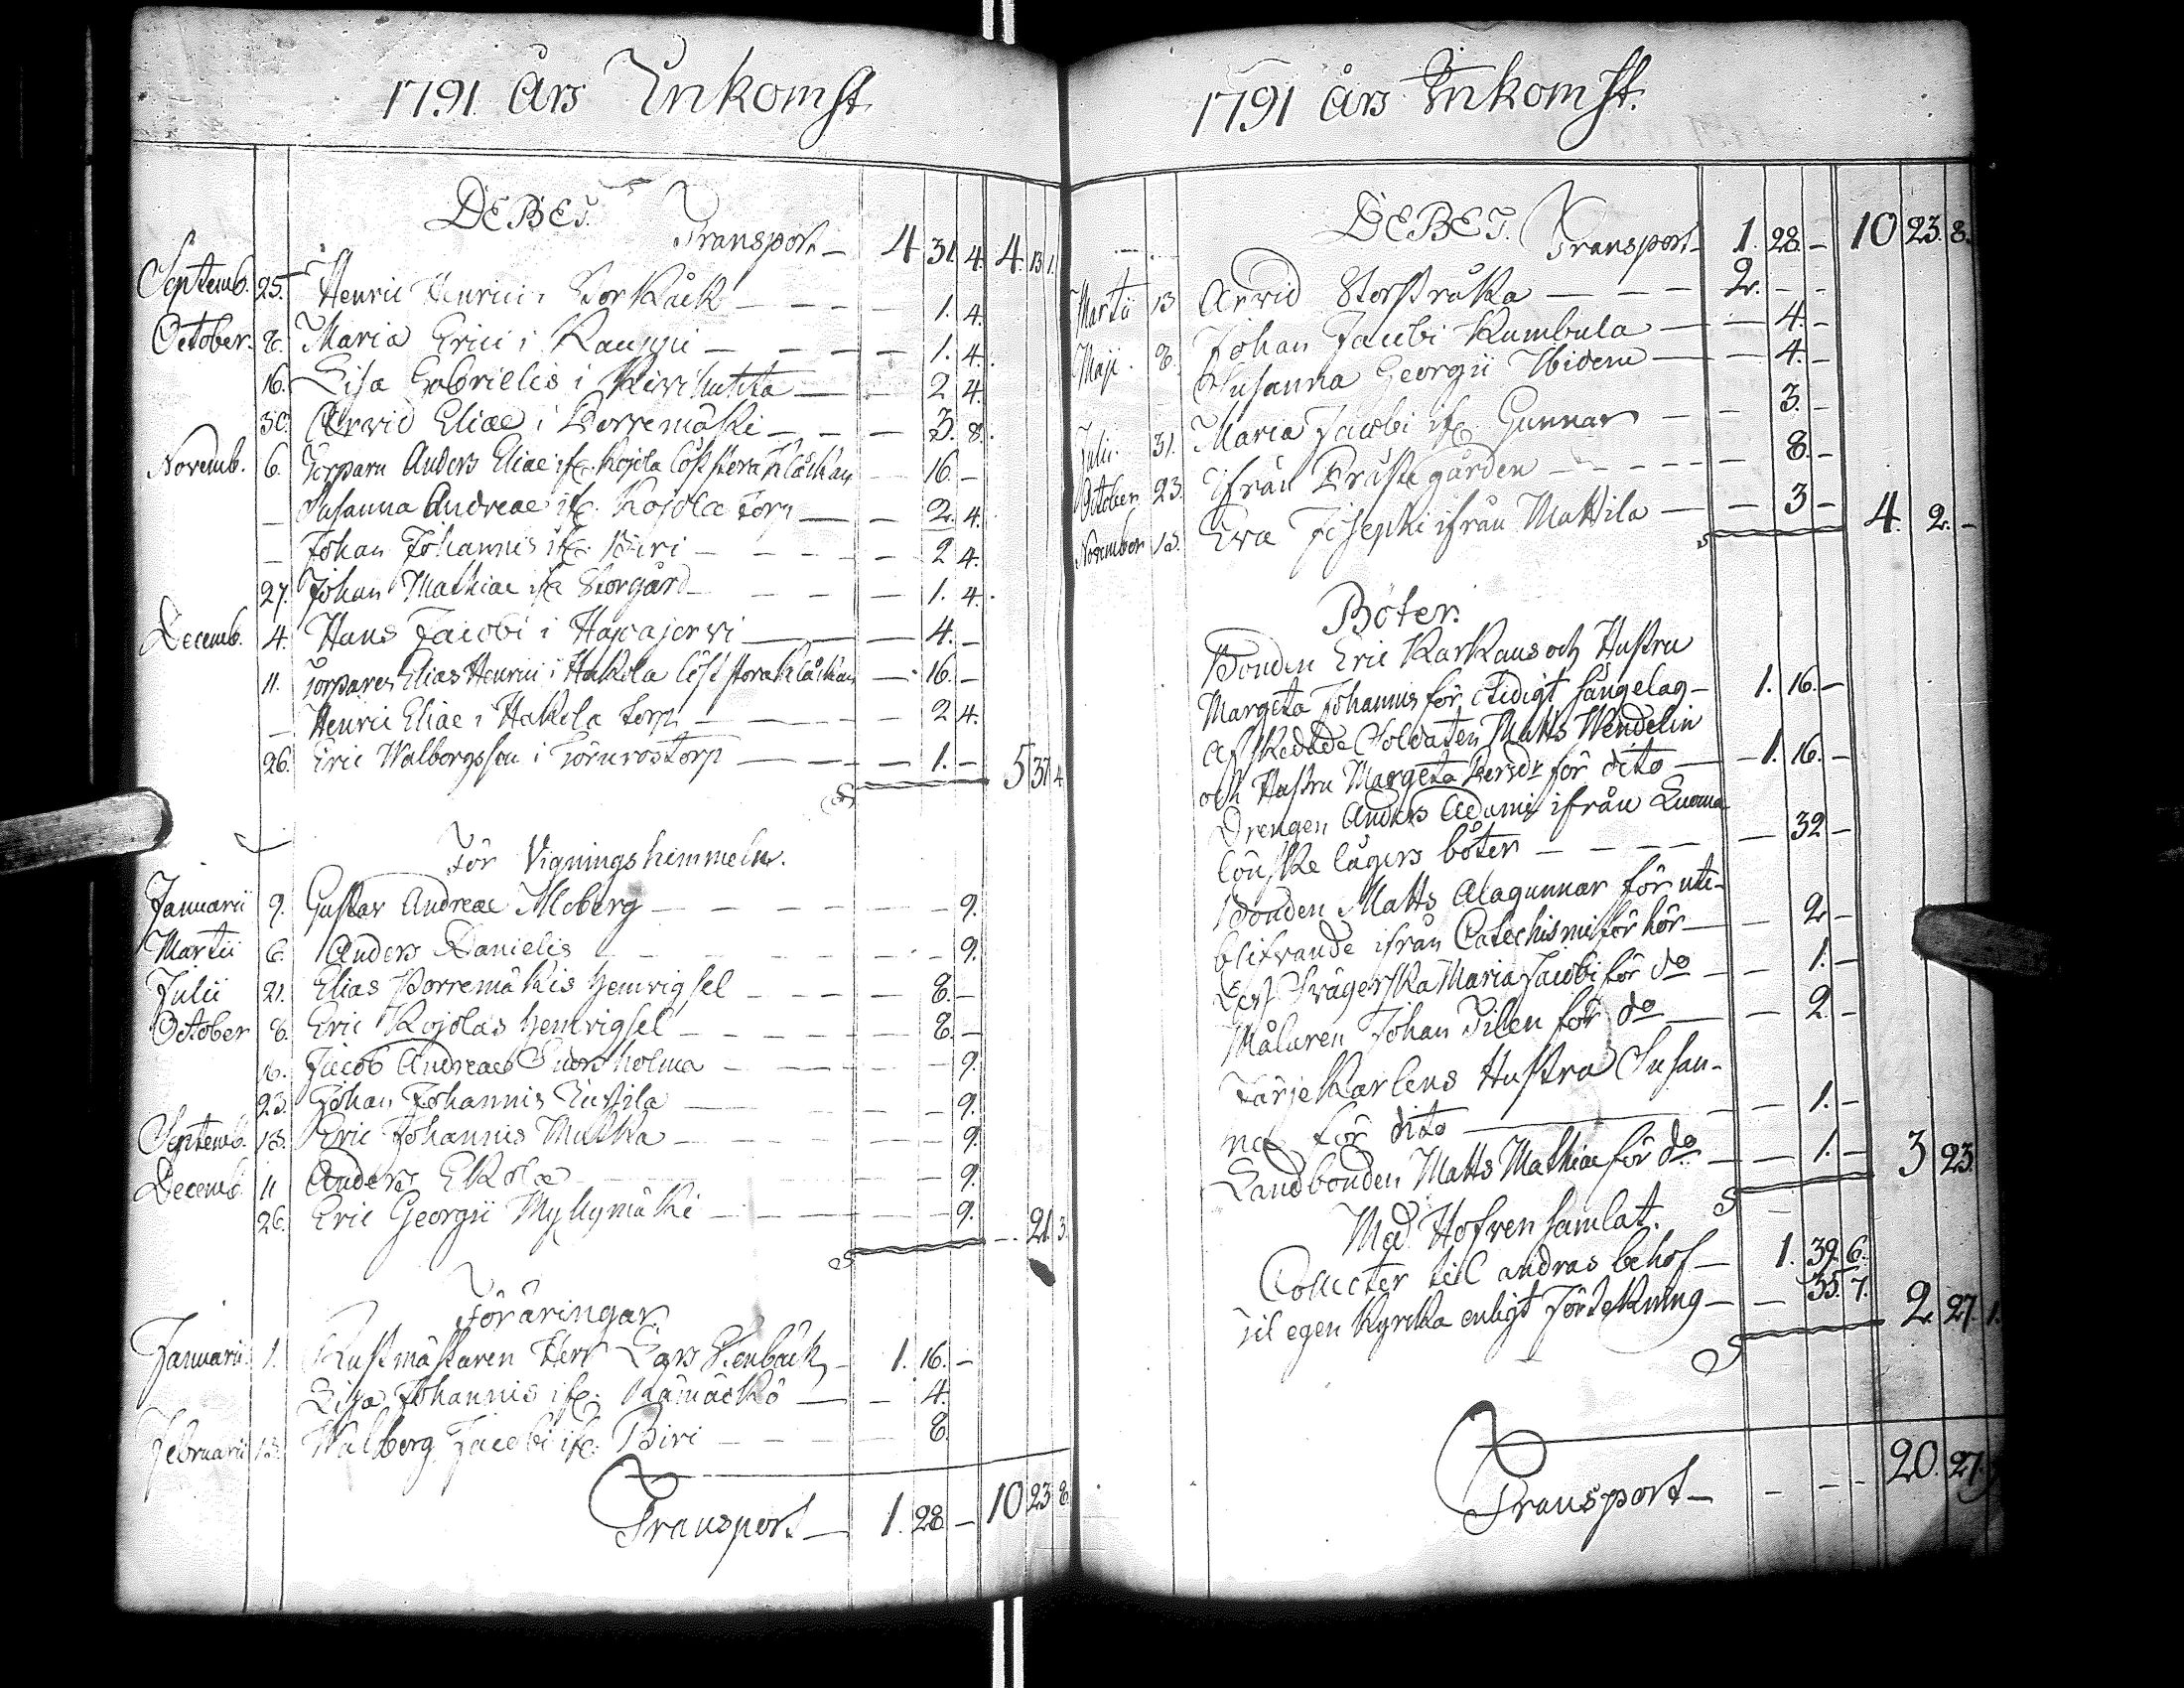 1791 Års Inkomst.
DEBET.
Transport — 4 31. 4. 4. 13 1.
Septemb. 25. Henric Henrici i Storkåck — — — 1. 4.
October. 8. Maria Erici i Kauppi — — — — 1. 4.
16. Lisa Gabrielis i Kivihuhta — — 2 4.
30. Arvid Eliae i Porremäki — — — 3. 8.
Novemb. 6. Torparn Anders Eliae ifr. Kojola löst stora Klåckan — 16. —
— Susanna Andreae ifr. Kojola torp — — 2. 4.
— Johan Johannis ifr. Biri — — — — 2 4.
27. Johan Mathiae ifr Storgård — — — 1. 4.
Decemb. 4. Hans Jacobi i Hapajervi — — — 4. —
11. Torparen Elias Henrici i Hakola löst stora Klåckan — 16. —
— Henric Eliae i Hakola torp — — — — 2 4.
26. Eric Walborgsson i Törnrostorp — — — 1. —
S 5 37 4
För Vigningshimmeln.
Januarii 9. Gustav Andreae Moberg — — — — — 9.
Martii 6. Anders Danielis — — — — — 9.
Julii 21. Elias Porremäkis hemvigsel — — — — 8. —
October 8. Eric Kojolas hemvigsel — — — — — 8. —
16. Jacob Andreae — — — — 9.
23. Johan Johannis — — — — — 9.
Septemb. 18. Eric Johannis Mukka — — — — — 9.
Decemb. 11 Anders Ekola — — — — — 9.
26. Eric Georgii Myllymäki — — — — — 9.
S — 21. 3.
Föräringar.
Januarii. 1. Rustmästaren Herr Lars Stenbäck — 1. 16. —
Lisa Johannis ifr. — — 4.
Februarii 13. Walborg Jacobi ifr. Biri — — — — 8.
Transport — 1. 28 — 10 23 8.
1791 års Inkomst.
DEBET.
Transport — 1. 28. — 10 23. 8.
Martii 13 Arvid Storstråka — — — 2. — —
Maji. 8. Johan Jacobi Kumbula — — 4. —
Susanna Georgii Ibidem — — 4. —
Julii. 31. Maria Jacobi ifr. Gunnar — — 3. —
October 23. Ifrån Prästegården — — — — 8. —
November 13. Eva Josephi ifrån Mattila — — 3 — 4. 2. —
Böter.
Bonden Eric Karkaus och Hustru
Margeta Johannis för otidigt sängelag — 1. 16. —
Afskedade Soldaten Matts Wendelin
och Hustru Margeta Persdr för dito — — 1. 16. —
Drengen Anders Adami ifrån Luoma
löuske lägers böter — — — — — 32 —
Bonden Matts Alagunnar för ute-
blifvande ifrån Catechismi förhör — — 2 —
Dess Svägerska Maria Jacobi för do — — 1. —
Målaren Johan Tilen för do — — 2. —
Färjekarlens Hustru Susan-
na för dito — — — 1. —
Landbonden Matts Mathiae för do — — 1. — 3 23.
S
Med Hofven samlat.
Collecter til andras behof — 1. 39. 6.
Til egen Kyrcka enligt förtekning — — 35. 7. 2. 27. 1.
S
Transport — — — — 20. 27.